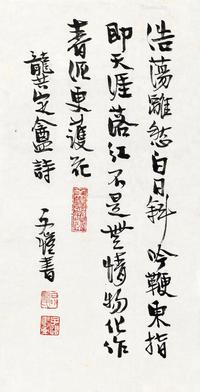 浩蕩離愁白日斜吟鞭東指
即天涯落紅不是無情物化作
春泥更護花
龔定盦詩
子愷書